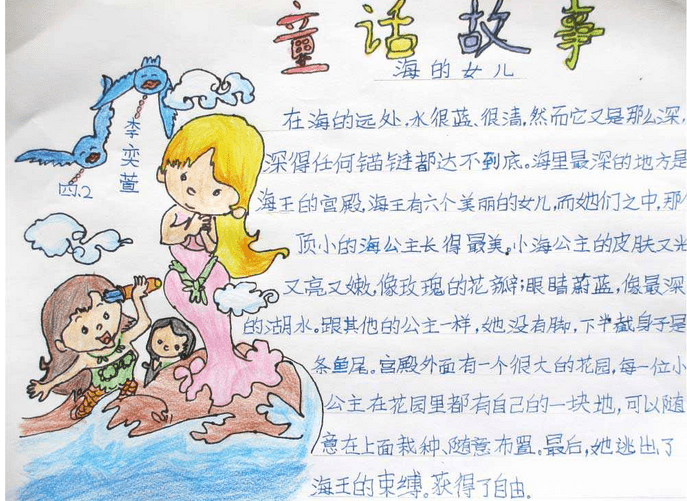 童话故事
海的女儿
李奕萱
四.2
在海的远处,水很蓝、很清,然而它又是那么深,
深得任何锚链都达不到底。海里最深的地方是
海王的宫殿,海王有六个美丽的女儿,而她们之中,那个
顶小的海公主长得最美,小海公主的皮肤又光
又亮又嫩,像玫瑰的花瓣;眼睛蔚蓝,像最深
的湖水。跟其他的公主一样,她没有脚,下半截身子是
条鱼尾。宫殿外面有一个很大的花园,每一位小
公主在花园里都有自己的一块地,可以随
意在上面栽种、随意布置。最后,她逃出了
海王的束缚。获得了自由.